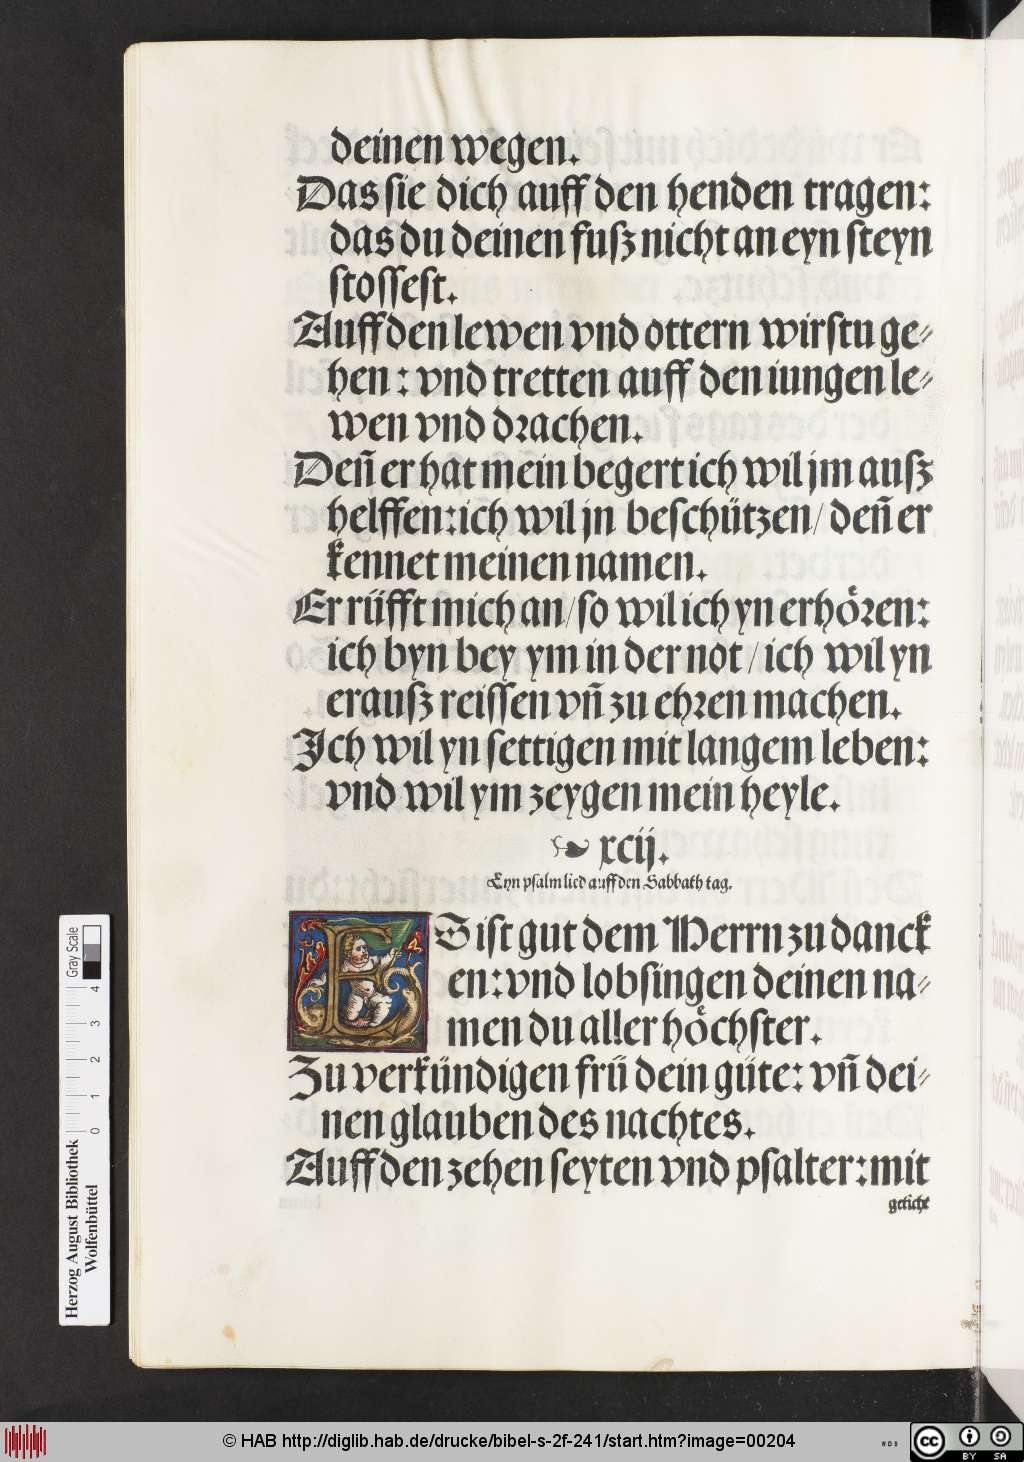 deinen wegen.
Das sie dich auff den henden tragen:
das du deinen fusz nicht an eyn steyn
stossest.
Auff den lewen vnd ottern wirstu ge⸗
hen : vnd tretten auff den iungen le⸗
wen vnd drachen.
Deñ er hat mein begert ich wil jm ausz
helffen: ich wil jn beschützen/ deñ er
kennet meinen namen.
Er rüfft mich an/ so wil ich yn erhoͤren:
ich byn bey ym in der not / ich wil yn
erausz reissen vñ zu ehren machen.
Ich wil yn settigen mit langem leben:
vnd wil ym zeygen mein heyle.
❧ xcij.
Eyn psalm lied auff den Sabbath tag.
ES ist gut dem Herrn zu danck
en: vnd lobsingen deinen na⸗
men du aller hoͤchster.
Zu verkündigen frü dein güte: vñ dei⸗
nen glauben des nachtes.
Auff den zehen seyten vnd psalter: mit
geticht
Herzog August Bibliothek
Wolfenbüttel
0 1 2 3 4
Gray Scale
© HAB http://diglib.hab.de/drucke/bibel-s-2f-241/start.htm?image=00204
WDB
cc BY SA